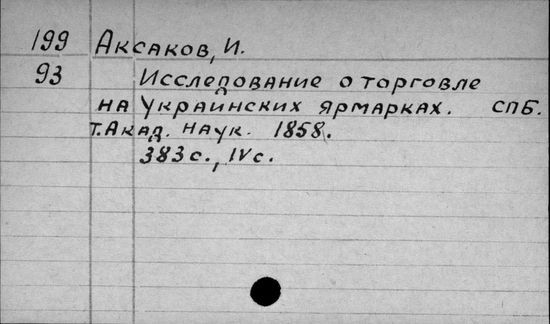 199 Аксаков, И.
93 Исследование о торговле
на украинских ярмарках. СПБ.
Т. Акад. наук. 1858.
383 с., IV с.